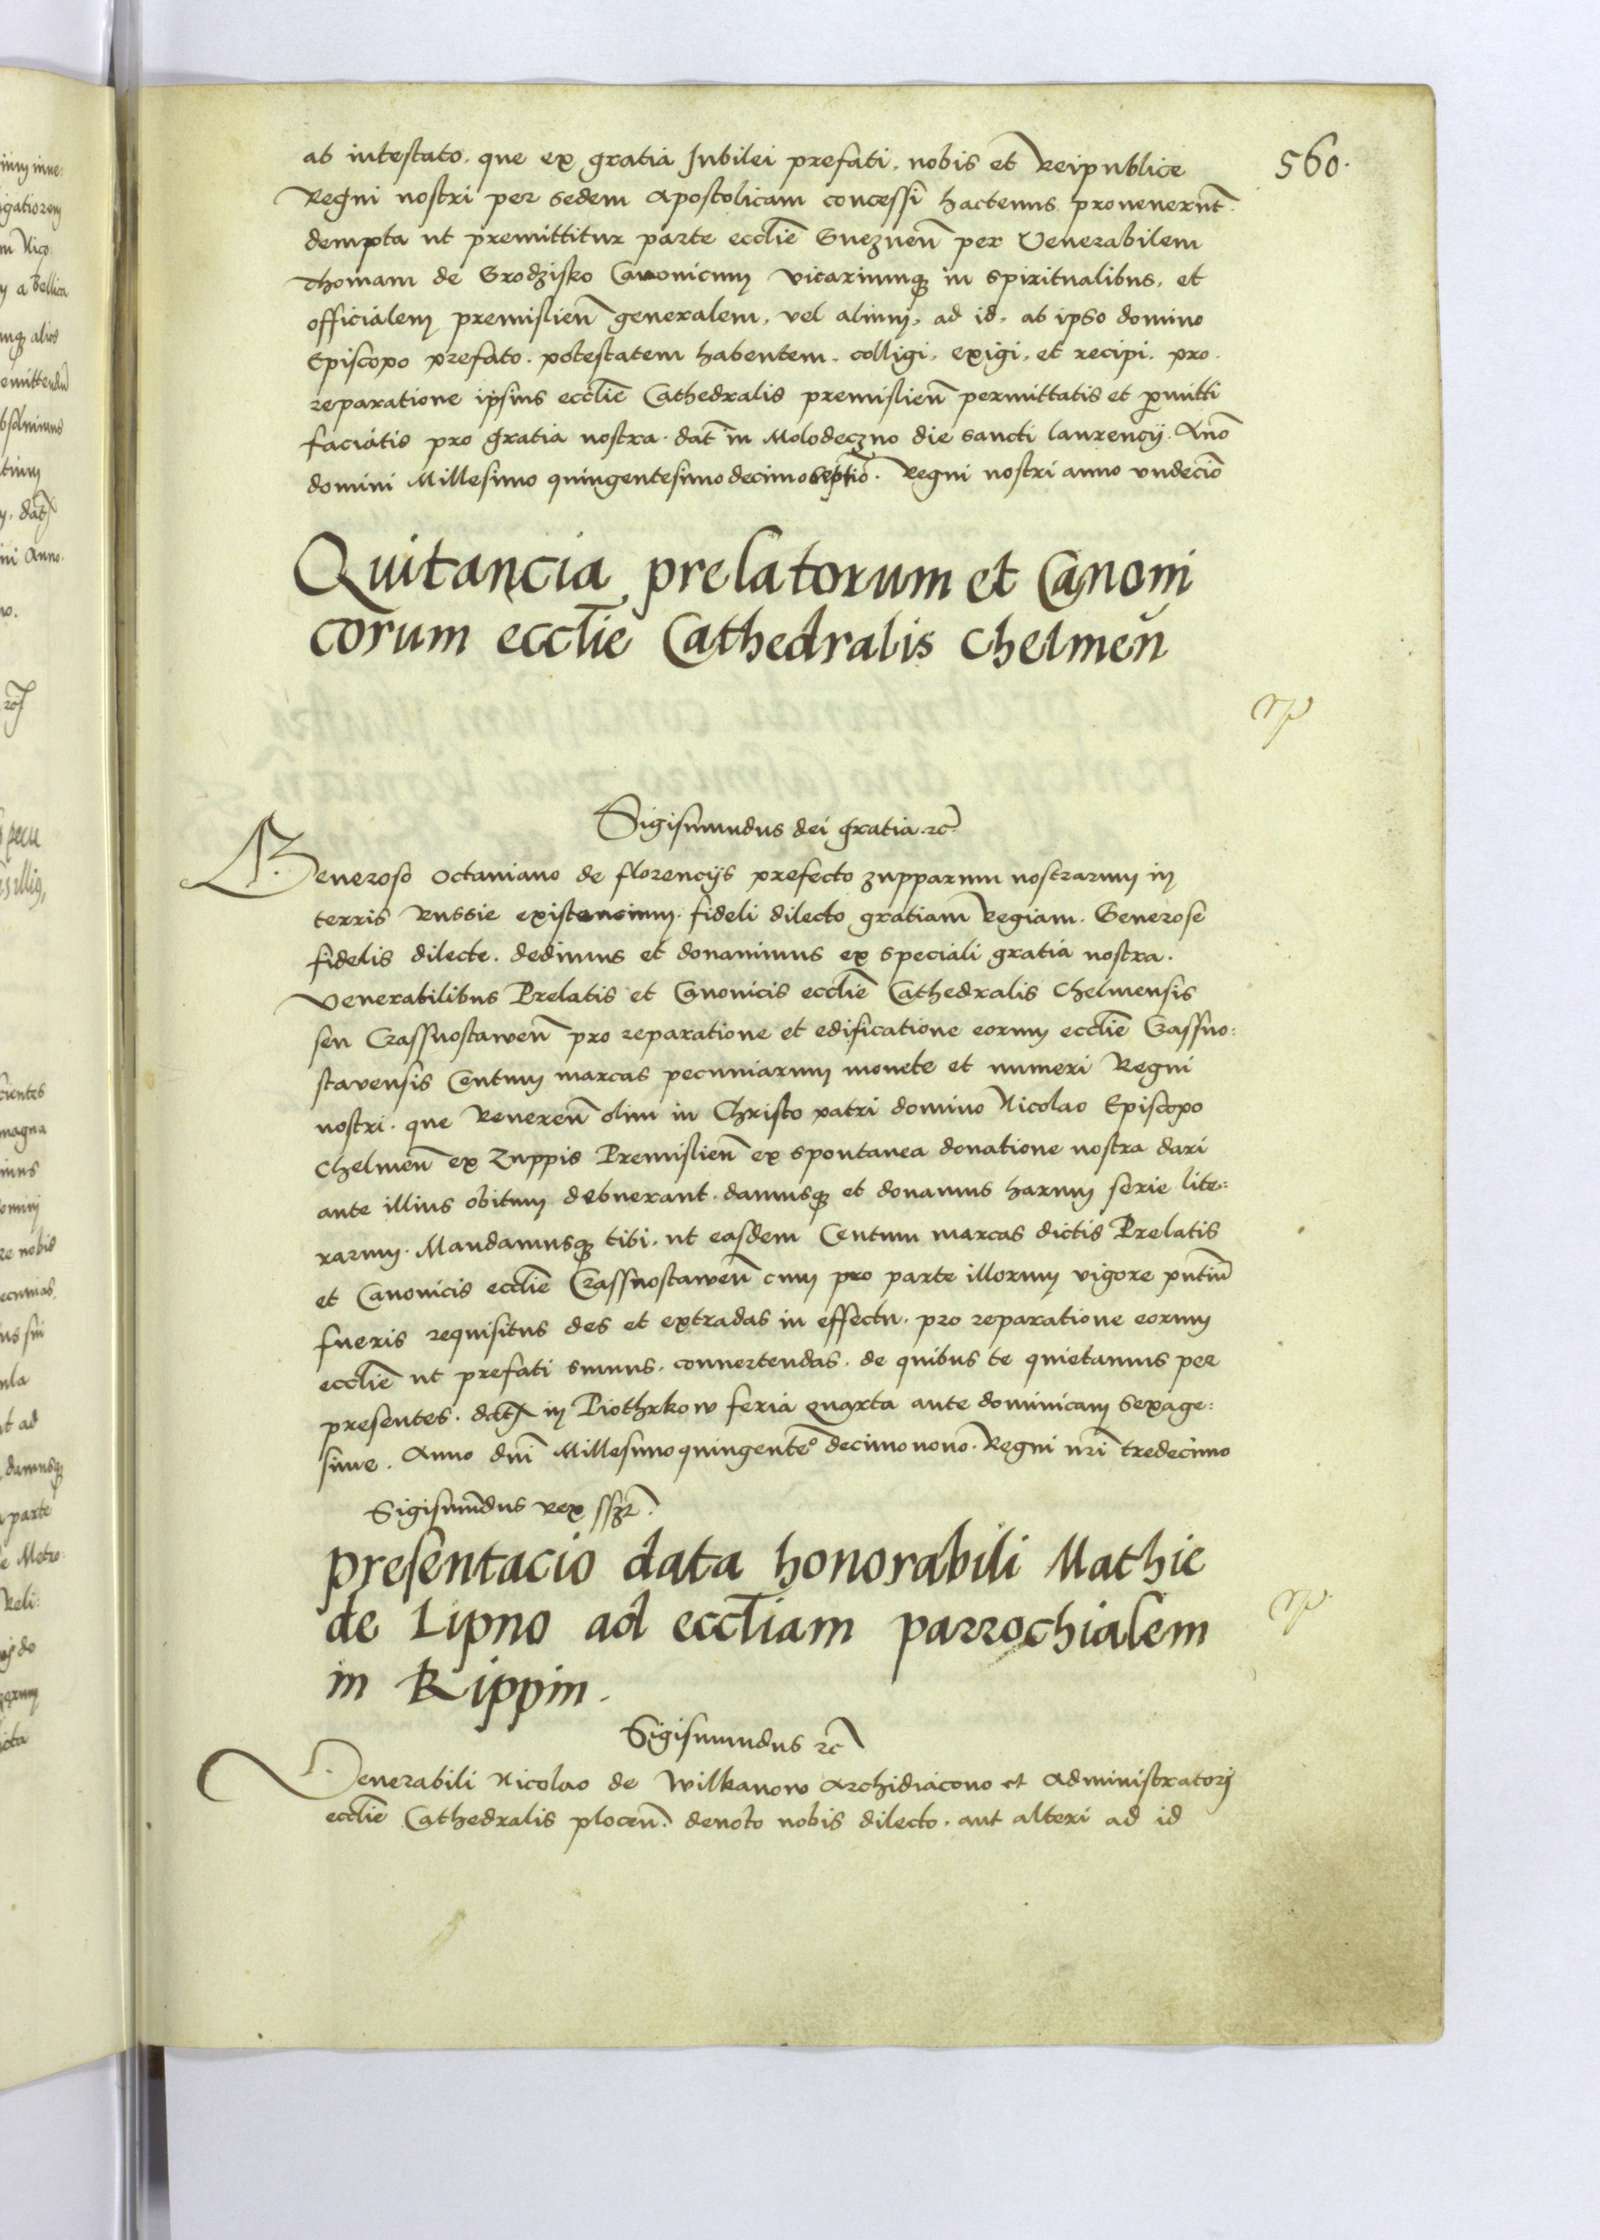 560.
ab intestato. que ex gratia Jubilei prefati. nobis et Reipublice
Regni nostri per sedem apostolicam concessi hactenus provenerūt.
dempta ut premittitur parte ecclīe Gneznen̄ per Venerabilem
Thomam de Grodzisko Canonicum vicariumq in spiritualibus, et
officialem premislien̄ generalem, vel alium, ad id, ab ipso domino
Episcopo prefato. potestatem habentem. colligi, exigi, et recipi. pro.
reparatione ipsius ecclīe Cathedralis premislien̄ permittatis et p̄mitti
faciatis pro gratia nostra. dat̄ in Molodeczno die sancti laurencij. An̄o
domini Millesimo quingentesimo decimo septīo. Regni nostri anno undecīo
Quitancia prelatorum et Canoni
corum ecclīe Cathedralis Chelmen̄
rp
Sigismundus dei gratia. rc̄
Generoso octaviano de florencijs prefecto zupparum nostrarum in
terris Russie existencium. fideli dilecto gratiam Regiam. Generose
fidelis dilecte. dedimus et donavimus ex speciali gratia nostra.
Venerabilibus Prelatis et Canonicis ecclīe Cathedralis Chelmensis
seu Crassnostawen̄ pro reparatione et edificatione eorum ecclīe Crassno:
stavensis Centum marcas pecuniarum monete et numeri Regni
nostri. que Reveren̄ olim in Christo patri domino Nicolao Episcopo
Chelmen̄ ex Zuppis Premislien̄ ex spontanea donatione nostra dari
ante illius obitum debuerant. damusq et donamus harum serie lite:
rarum. Mandamusq tibi. ut easdem Centum marcas dictis Prelatis
et Canonicis ecclīe Crassnostawen̄ cum pro parte illorum vigore pn̄tium
fueris requisitus des et extradas in effectu. pro reparatione eorum
ecclīe ut prefati sumus. convertendas. de quibus te quietamus per
presentes. dat̄ in Piothrkow feria quarta ante dominicam sexage:
sime. Anno dn̄i Millesimo quingenteo decimo nono. Regni nr̄i tredecimo
Sigismūdus rex ssz̄t.
presentacio data honorabili Mathie
de Lipno ad eccl̄iam parrochialem
in Rippin.
rp.
Sigismundus rc̄
Venerabili Nicolao de Wilkanow archidiacono et administratori
ecclīe Cathedralis plocen̄. devoto nobis dilecto. aut alteri ad id